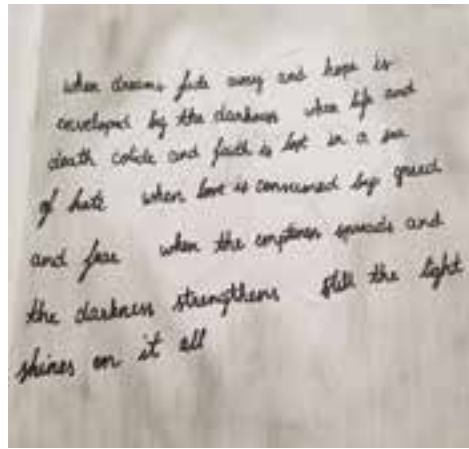 when dreams fade away and hope is
enveloped by the darkness when life and
death colide and faith is lost in a sea
of hate when love is consumed by greed
and fear when the emptiness spreads and
the darkness strengthens still the light
shines on it all